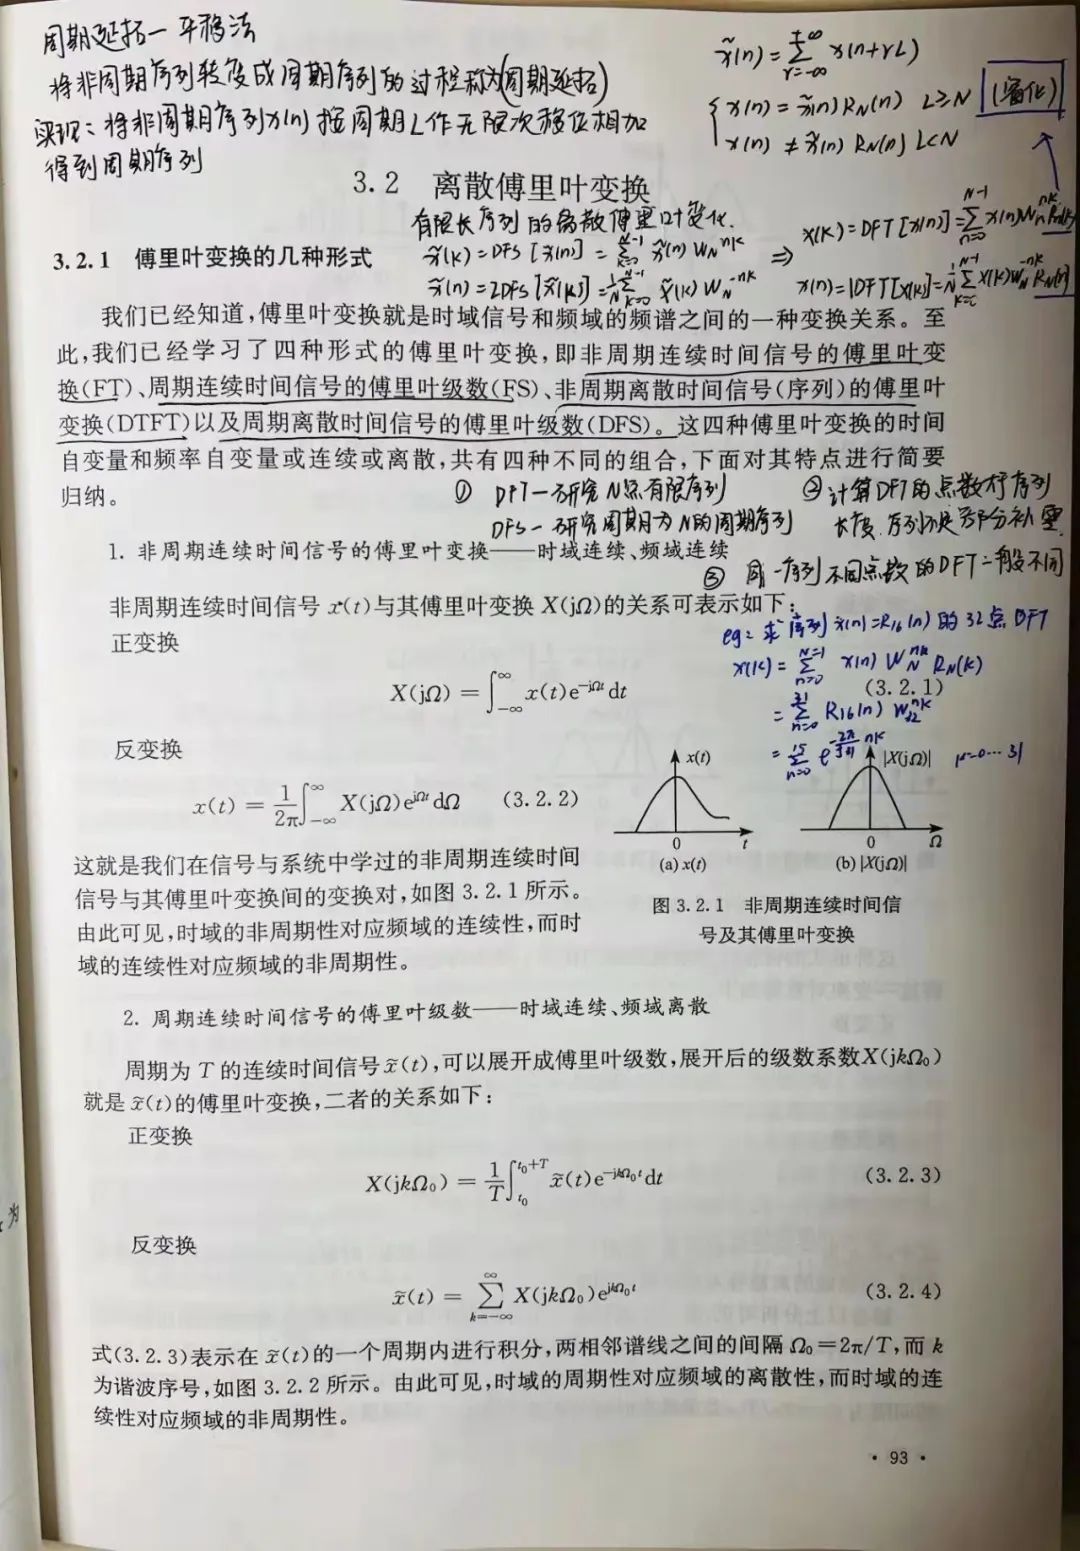 周期延拓—平移法
将非周期序列转变成周期序列的过程称为(周期延拓)
实现：将非周期序列x(n)按周期L作无限次移位相加
得到周期序列
x̃(n) = Σ_{r=-∞}^{+∞} x(n+rL)
{ x(n) = x̃(n) R_N(n) L≥N
x(n) ≠ x̃(n) R_N(n) L<N
3.2 离散傅里叶变换
有限长序列的离散傅里叶变化.
x̃(k) = DFS [x̃(n)] = Σ x̃(n) W_N^{nk} ⇒ X(k) = DFT[x(n)] = Σ_{n=0}^{N-1} x(n) W_N^{nk} R_N(k)
x̃(n) = IDFS [x̃(k)] = 1/N Σ_{k=0}^{N-1} x̃(k) W_N^{-nk} x(n) = IDFT[X(k)] = 1/N Σ X(k) W_N^{-nk} R_N(n)
3.2.1 傅里叶变换的几种形式
我们已经知道,傅里叶变换就是时域信号和频域的频谱之间的一种变换关系。至
此,我们已经学习了四种形式的傅里叶变换,即非周期连续时间信号的傅里叶变
换(FT)、周期连续时间信号的傅里叶级数(FS)、非周期离散时间信号(序列)的傅里叶
变换(DTFT)以及周期离散时间信号的傅里叶级数(DFS)。这四种傅里叶变换的时间
自变量和频率自变量或连续或离散,共有四种不同的组合,下面对其特点进行简要
归纳。
① DFT—研究N点有限序列
DFS—研究周期为N的周期序列
② 计算DFT的点数大于序列
长度,序列不足部分补零
③ 同一序列不同点数的DFT一般不同
1. 非周期连续时间信号的傅里叶变换——时域连续、频域连续
非周期连续时间信号 x(t)与其傅里叶变换 X(jΩ)的关系可表示如下：
eg：求序列 x(n)=R₁₆(n) 的 32点DFT
x(k) = Σ_{n=0}^{N-1} x(n) W_N^{nk} R_N(k)
= Σ_{n=0}^{31} R₁₆(n) W_{32}^{nk}
正变换
X(jΩ) = ∫_{-∞}^{∞} x(t)e^{-jΩt} dt (3.2.1)
反变换
x(t) = 1/2π ∫_{-∞}^{∞} X(jΩ)e^{jΩt} dΩ (3.2.2)
x(t)
0
t
(a) x(t)
|X(jΩ)|
0
Ω
(b) |X(jΩ)|
图 3.2.1 非周期连续时间信
号及其傅里叶变换
这就是我们在信号与系统中学过的非周期连续时间
信号与其傅里叶变换间的变换对,如图 3.2.1 所示。
由此可见,时域的非周期性对应频域的连续性,而时
域的连续性对应频域的非周期性。
2. 周期连续时间信号的傅里叶级数——时域连续、频域离散
周期为 T 的连续时间信号 x̃(t),可以展开成傅里叶级数,展开后的级数系数X(jkΩ₀)
就是 x̃(t)的傅里叶变换,二者的关系如下：
正变换
X(jkΩ₀) = 1/T ∫_{t₀}^{t₀+T} x̃(t)e^{-jkΩ₀t} dt (3.2.3)
反变换
x̃(t) = Σ_{k=-∞}^{∞} X(jkΩ₀)e^{jkΩ₀t} (3.2.4)
式(3.2.3)表示在 x̃(t)的一个周期内进行积分,两相邻谱线之间的间隔 Ω₀=2π/T,而 k
为谐波序号,如图 3.2.2 所示。由此可见,时域的周期性对应频域的离散性,而时域的连
续性对应频域的非周期性。
· 93 ·